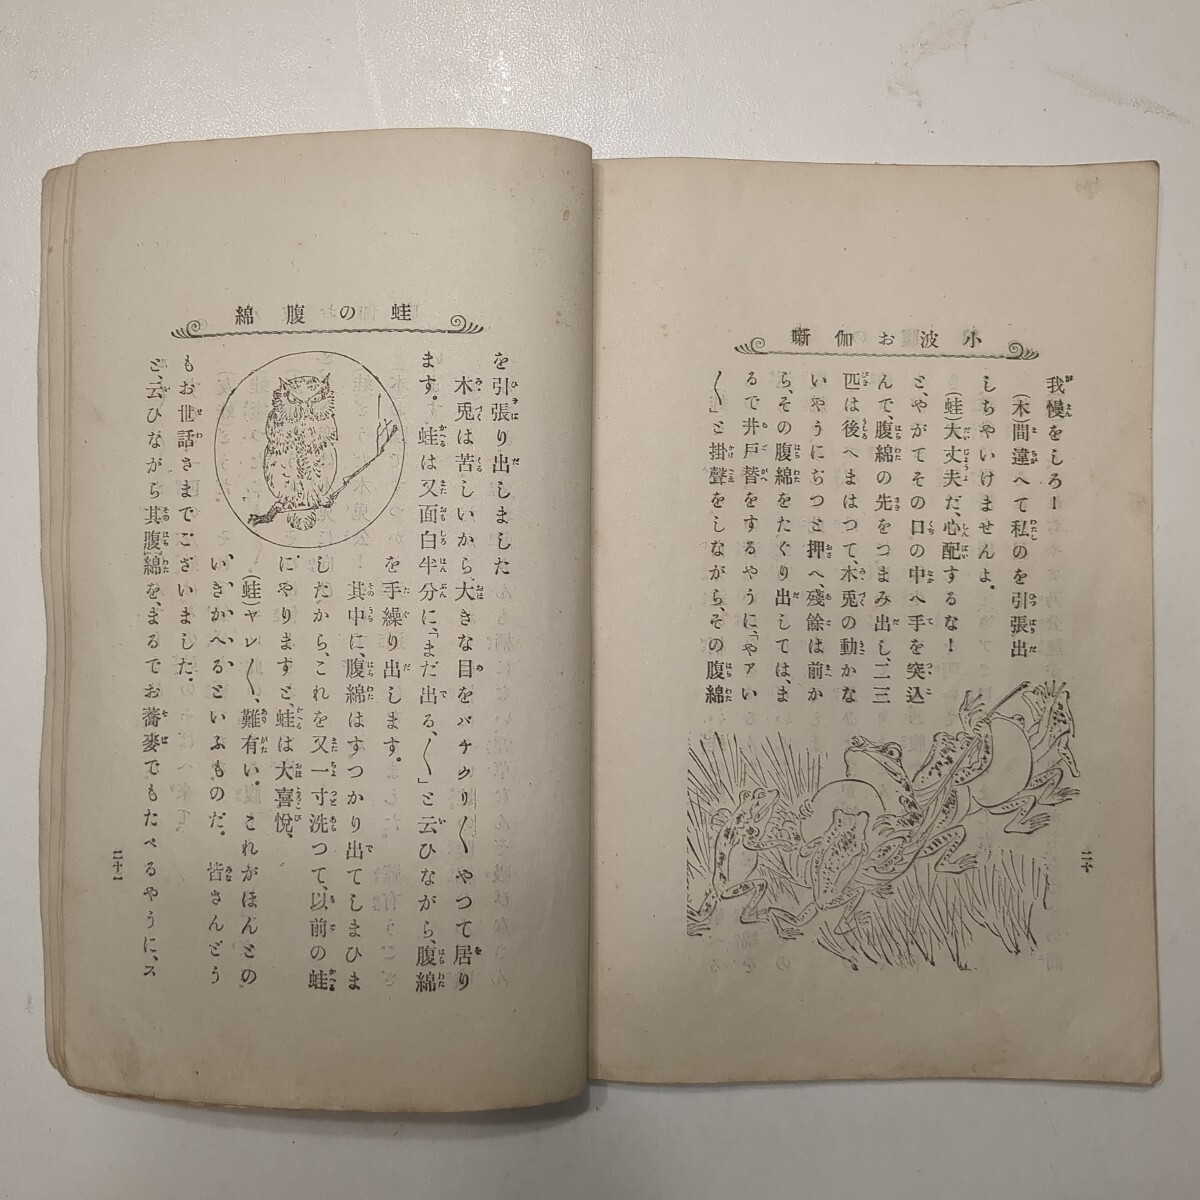 小波お伽噺
我慢をしろー
(木)間違へて私のを引張出
しちやいけませんよ。
(蛙)大丈夫だ、心配するな!
と、やがてその口の中へ手を突込
んで、腹綿の先をつまみ出し、二三
匹は後へまはつて、木兎の動かな
いやうにぢつと押へ、殘餘は前か
ら、その腹綿をたぐり出しては、ま
るで井戸替をするやうに、「やアい
〱」と掛聲をしながら、その腹綿
二十
蛙の腹綿
を引張り出しました
木兎は苦しいから、大きな目をパチクリ〱やつて居り
ます。蛙は又面白半分に、「まだ出る、〱」と云ひながら、腹綿
を手繰り出します。
其中に、腹綿はすつかり出てしまひま
したから、これを又一寸洗つて、以前の蛙
にやりますと、蛙は大喜悅、
(蛙)ヤレ〱、難有い。これがほんとの
いきかへるといふものだ。皆さんどう
もお世話さまでございました。
と、云ひながら其腹綿を、まるでお蕎麥でもたべるやうに、ス
二十一